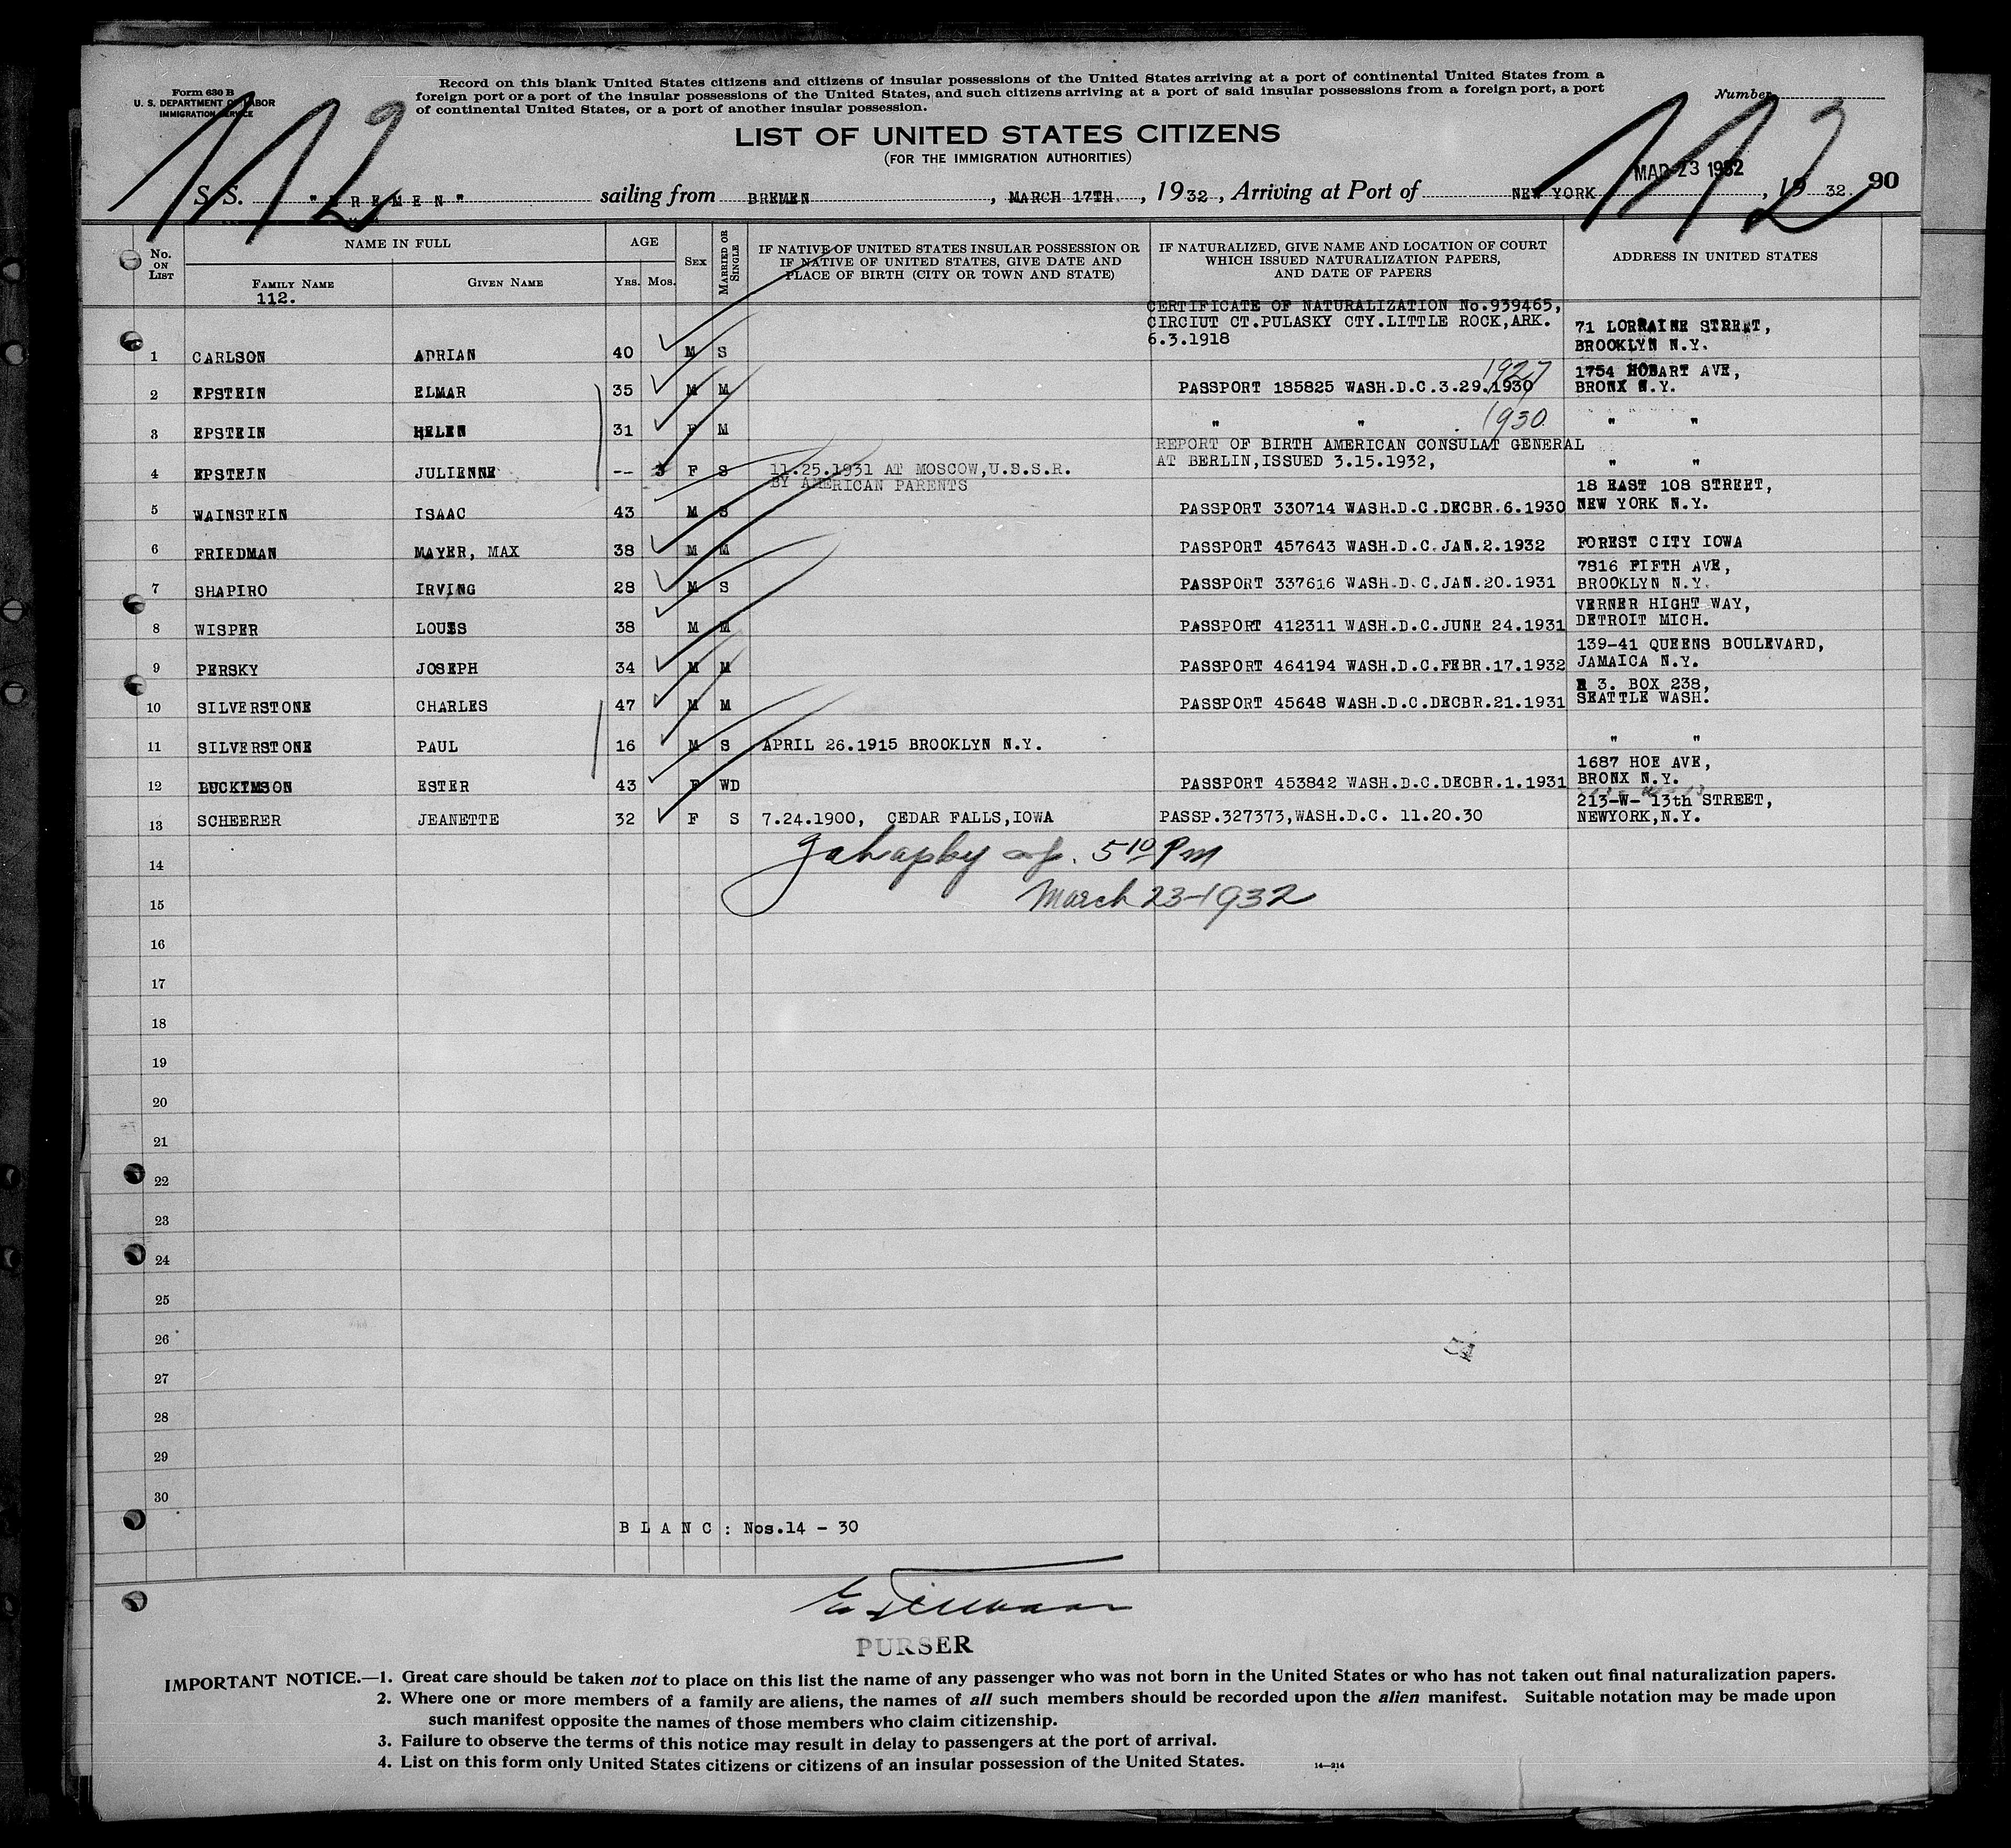 Form 630 B
U. S. DEPARTMENT OF LABOR
IMMIGRATION SERVICE
Record on this blank United States citizens and citizens of insular possessions of the United States arriving at a port of continental United States from a
foreign port or a port of the insular possessions of the United States, and such citizens arriving at a port of said insular possessions from a foreign port, a port
of continental United States, or a port of another insular possession.
Number
112 112
LIST OF UNITED STATES CITIZENS
(FOR THE IMMIGRATION AUTHORITIES)
MAR 23 1932
S. S. "BREMEN" sailing from BREMEN, MARCH 17TH., 1932, Arriving at Port of NEW YORK, 1932 90
No. ON LIST NAME IN FULL AGE SEX MARRIED OR SINGLE IF NATIVE OF UNITED STATES INSULAR POSSESSION OR IF NATIVE OF UNITED STATES, GIVE DATE AND PLACE OF BIRTH (CITY OR TOWN AND STATE) IF NATURALIZED, GIVE NAME AND LOCATION OF COURT WHICH ISSUED NATURALIZATION PAPERS, AND DATE OF PAPERS ADDRESS IN UNITED STATES
FAMILY NAME GIVEN NAME YRS. MOS.
112.
CERTIFICATE OF NATURALIZATION No.939465,
CIRCIUT CT.PULASKY CTY.LITTLE ROCK,ARK. 71 LORRAINE STREET,
6.3.1918 BROOKLYN N.Y.
1 CARLSON ADRIAN 40 M S
1927 1754 HOBART AVE,
2 EPSTEIN ELMAR 35 M M PASSPORT 185825 WASH.D.C.3.29.1930 BRONX N.Y.
3 EPSTEIN HELEN 31 F M " " 1930 " "
REPORT OF BIRTH AMERICAN CONSULAT GENERAL
4 EPSTEIN JULIENNE -- 3 F S 11.25.1931 AT MOSCOW,U.S.S.R. AT BERLIN,ISSUED 3.15.1932, " "
BY AMERICAN PARENTS 18 EAST 108 STREET,
5 WAINSTEIN ISAAC 43 M S PASSPORT 330714 WASH.D.C.DECBR.6.1930 NEW YORK N.Y.
6 FRIEDMAN MAYER, MAX 38 M M PASSPORT 457643 WASH.D.C.JAN.2.1932 FOREST CITY IOWA
7816 FIFTH AVE,
7 SHAPIRO IRVING 28 M S PASSPORT 337616 WASH.D.C.JAN.20.1931 BROOKLYN N.Y.
VERNER HIGHT WAY,
8 WISPER LOUIS 38 M M PASSPORT 412311 WASH.D.C.JUNE 24.1931 DETROIT MICH.
139-41 QUEENS BOULEVARD,
9 PERSKY JOSEPH 34 M M PASSPORT 464194 WASH.D.C.FEBR.17.1932 JAMAICA N.Y.
R 3. BOX 238,
10 SILVERSTONE CHARLES 47 M M PASSPORT 45648 WASH.D.C.DECBR.21.1931 SEATTLE WASH.
11 SILVERSTONE PAUL 16 M S APRIL 26.1915 BROOKLYN N.Y. " "
1687 HOE AVE,
12 ESTER 43 F WD PASSPORT 453842 WASH.D.C.DECBR.1.1931 BRONX N.Y.
213-W- 13th STREET,
13 SCHEERER JEANETTE 32 F S 7.24.1900, CEDAR FALLS,IOWA PASSP.327373,WASH.D.C. 11.20.30 NEWYORK,N.Y.
14 5 10 Pm
15 March 23-1932
16
17
18
19
20
21
22
23
24
25
26
27
28
29
30
BLANC: Nos.14 - 30
PURSER
IMPORTANT NOTICE.—1. Great care should be taken not to place on this list the name of any passenger who was not born in the United States or who has not taken out final naturalization papers.
2. Where one or more members of a family are aliens, the names of all such members should be recorded upon the alien manifest. Suitable notation may be made upon
such manifest opposite the names of those members who claim citizenship.
3. Failure to observe the terms of this notice may result in delay to passengers at the port of arrival.
4. List on this form only United States citizens or citizens of an insular possession of the United States. 14—214